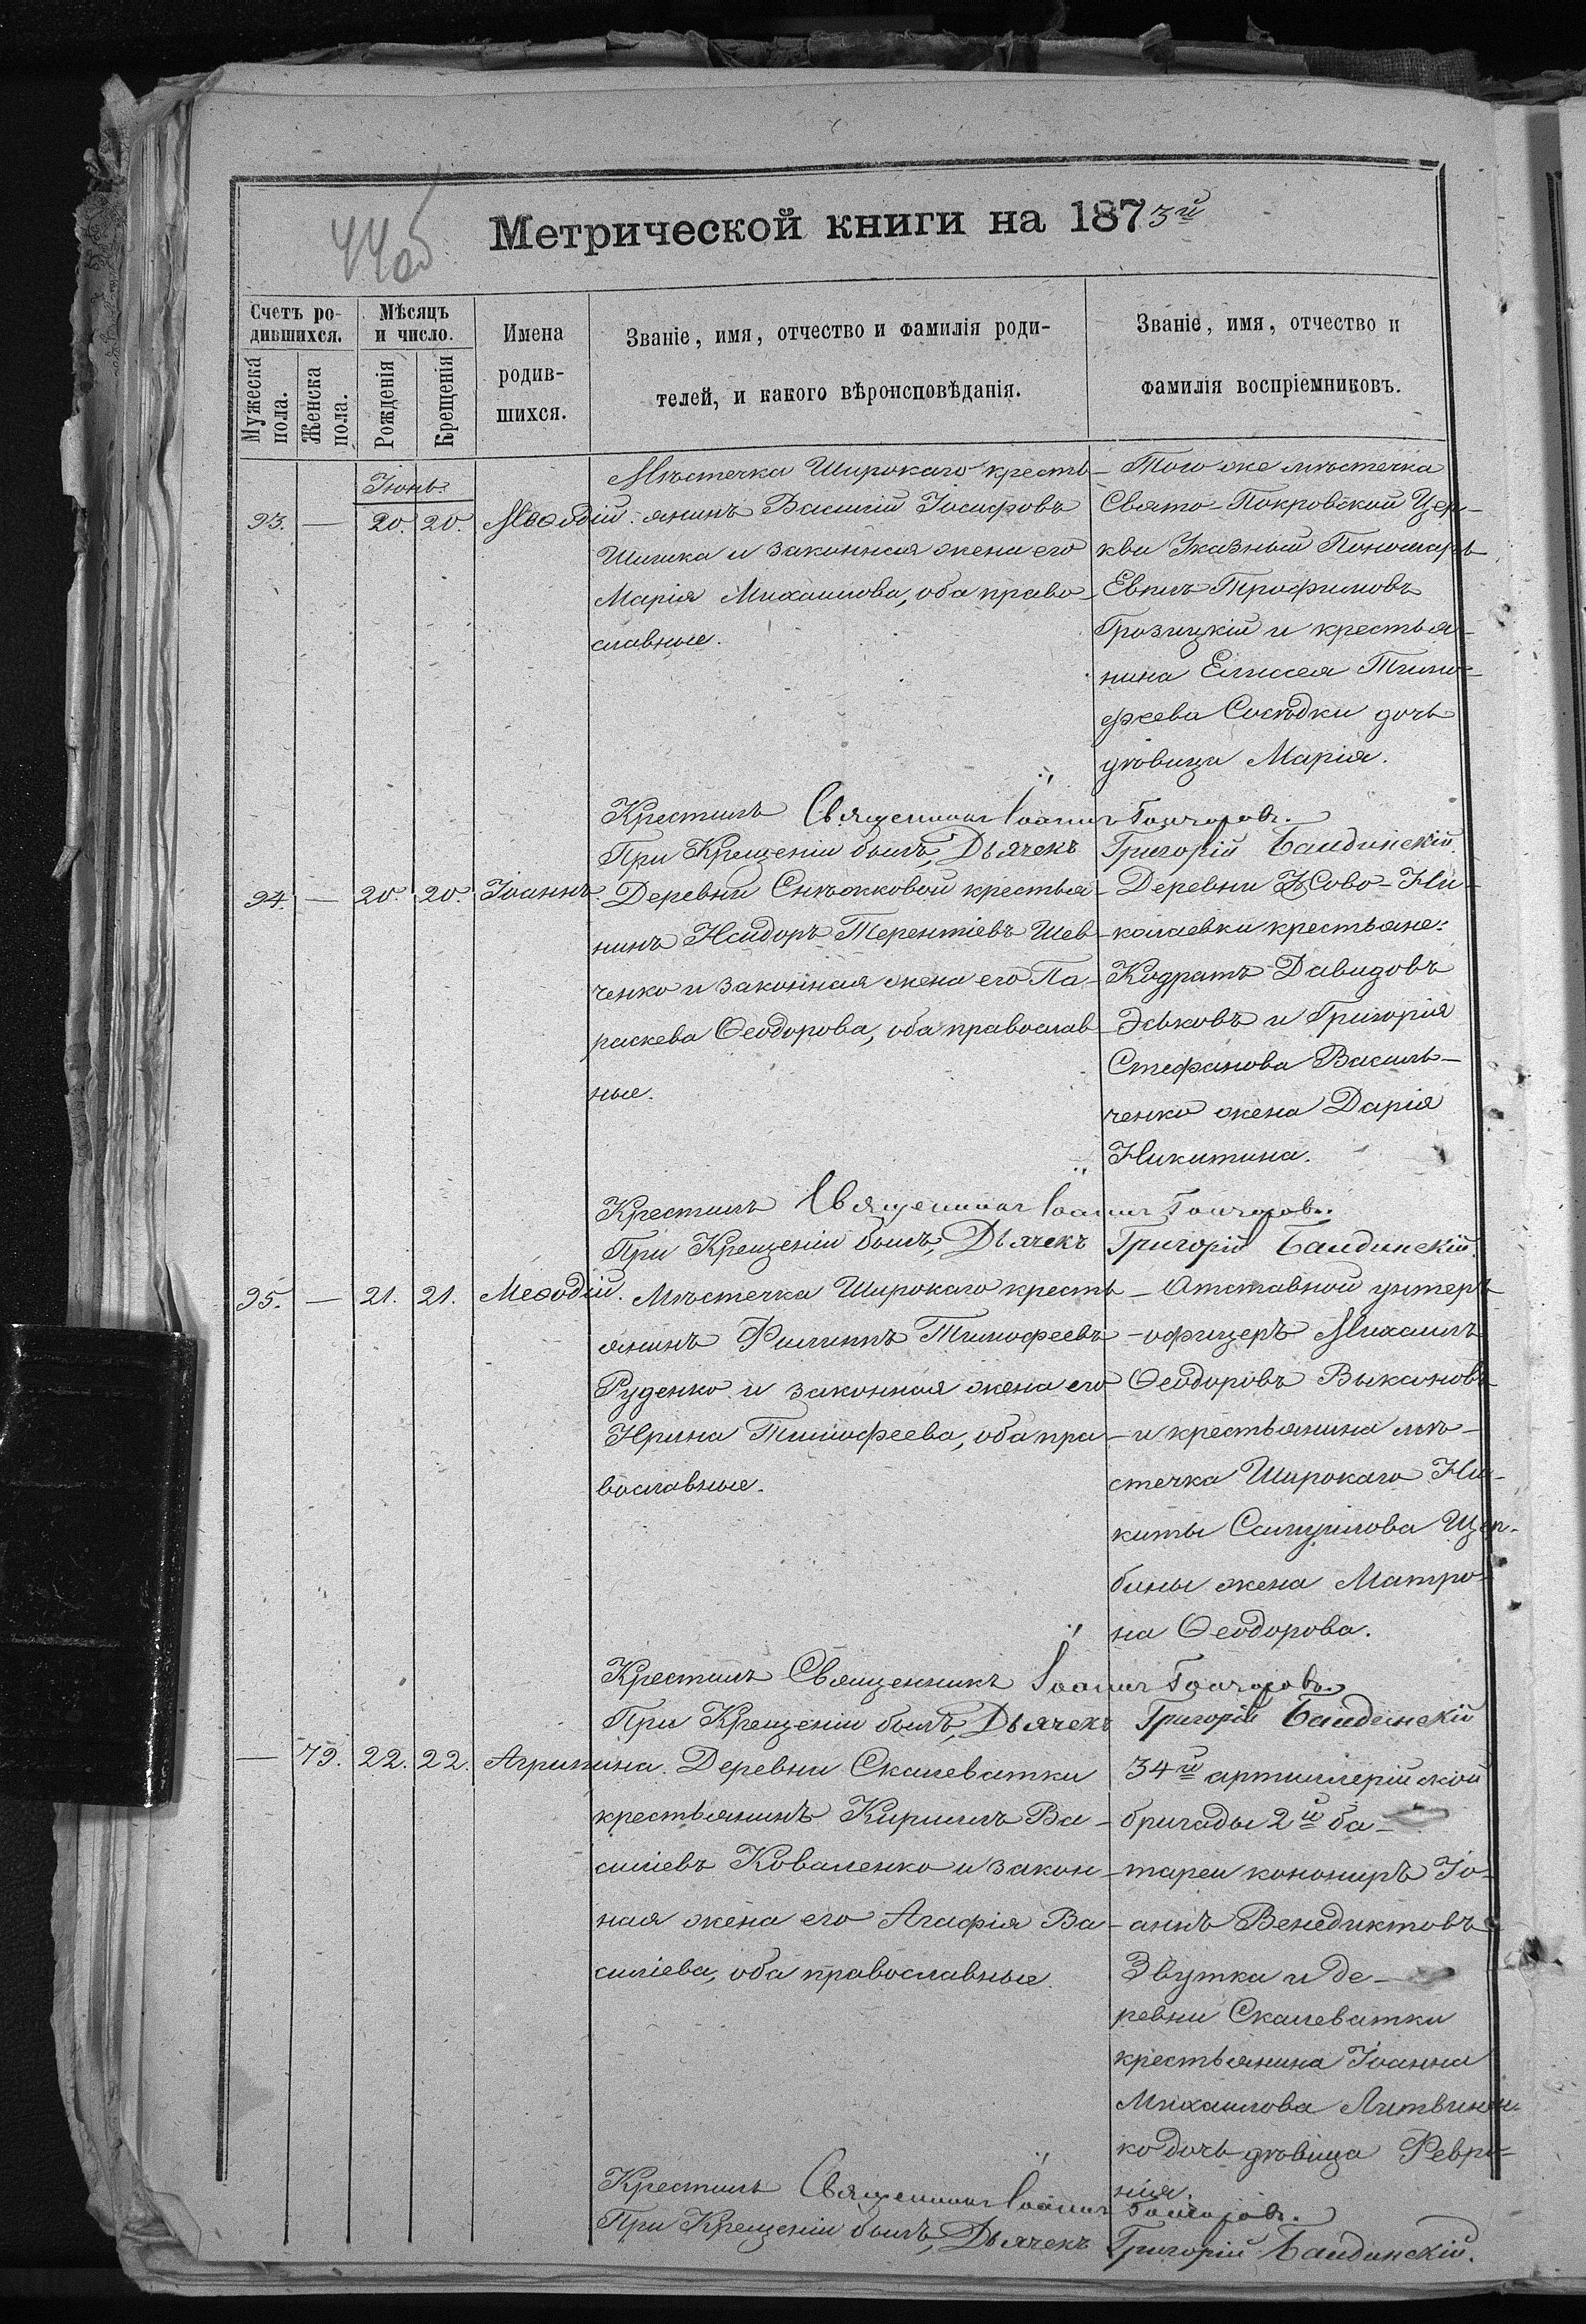 44об
Метрической книги на 1873й
Счетъ ро-
дившихся.
Мужеска
пола.
Женска
пола.
Мѣсяцъ
и число.
Рожденія
Крещенія
Имена
родив-
шихся.
Званіе, имя, отчество и фамилія роди-
телей, и какого вѣроисповѣданія.
Званіе, имя, отчество и
фамилія воспріемниковъ.
Іюнь.
93. — 20. 20. Меѳодій.
Мѣстечка Широкаго кресть-
янинъ Василій Іосифовъ
Шишка и законная жена его
Марія Михаилова, оба право-
славные.
Того же мѣстечка
Свято-Покровской Цер-
кви Указный Пономарь
Трофимовъ
Грозицкій и крестья-
нина Елисея Тимо-
феева Сосѣдки дочь
дѣвица Марія.
Крестилъ Священникъ Іоаннъ Гончаровъ.
При Крещеніи былъ, Дьячекъ Григорій Бандинскій
94. — 20. 20. Іоаннъ.
Деревни Снѣжковой крестья-
нинъ Исидоръ Терентіевъ Шев-
ченко и законная жена его Па-
раскева Ѳеодорова, оба православ-
ные.
Деревни Ново-Ни-
колаевки крестьяне:
Кодратъ Давидовъ
Эськовъ и Григорія
Стефанова Василь-
ченко жена Дарія
Никитина.
Крестилъ Священникъ Іоаннъ Гончаровъ.
При Крещеніи былъ, Дьячекъ Григорій Бандинскій.
95. — 21. 21. Меѳодій.
Мѣстечка Широкаго кресть-
янинъ Филиппъ Тимофеевъ
Руденко и законная жена его
Ирина Тимофеева, оба пра-
вославные.
Отставной унтеръ
-офицеръ Михаилъ
Ѳеодоровъ Выкановъ
и крестьянина мѣ-
стечка Широкаго Ни-
киты Самуилова Щер-
бины жена Матро-
на Ѳеодорова.
Крестилъ Священникъ Іоаннъ Гончаровъ.
При Крещеніи былъ, Дьячекъ Григорій Бандинскій
— 79. 22. 22. Агрипина.
Деревни Скалеватки
крестьянинъ Кириллъ Ва-
силіевъ Коваленко и закон-
ная жена его Агафія Ва-
силіева, оба православные.
34й артиллерійской
бригады 2й ба-
тареи конониръ Іо-
аннъ Венедиктовъ
Звутка и де-
ревни Скалеватки
крестьянина Іоанна
Михаилова Литвинен-
ко дочь дѣвица Февро-
нія.
Крестилъ Священникъ Іоаннъ Гончаровъ.
При Крещеніи былъ, Дьячекъ Григорій Бандинскій.